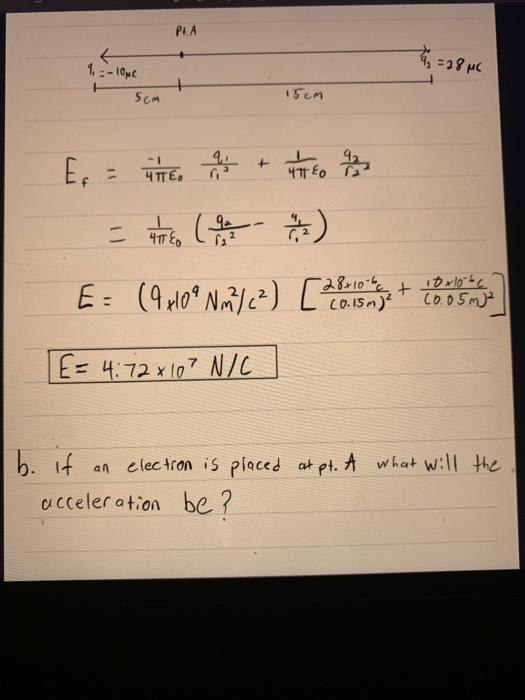 Pt. A
q₁ = -10μC
q₂ = 28 μC
5cm
15cm
E_f = -1/4πε₀ q₁/r₁² + 1/4πε₀ q₂/r₂²
= 1/4πε₀ (q₂/r₂² - q₁/r₁²)
E = (9x10⁹ Nm²/c²) [28x10⁻⁶c/(0.15m)² + 10x10⁻⁶c/(0.05m)²]
E = 4.72 x 10⁷ N/C
b. if an electron is placed at pt. A what will the
acceleration be?